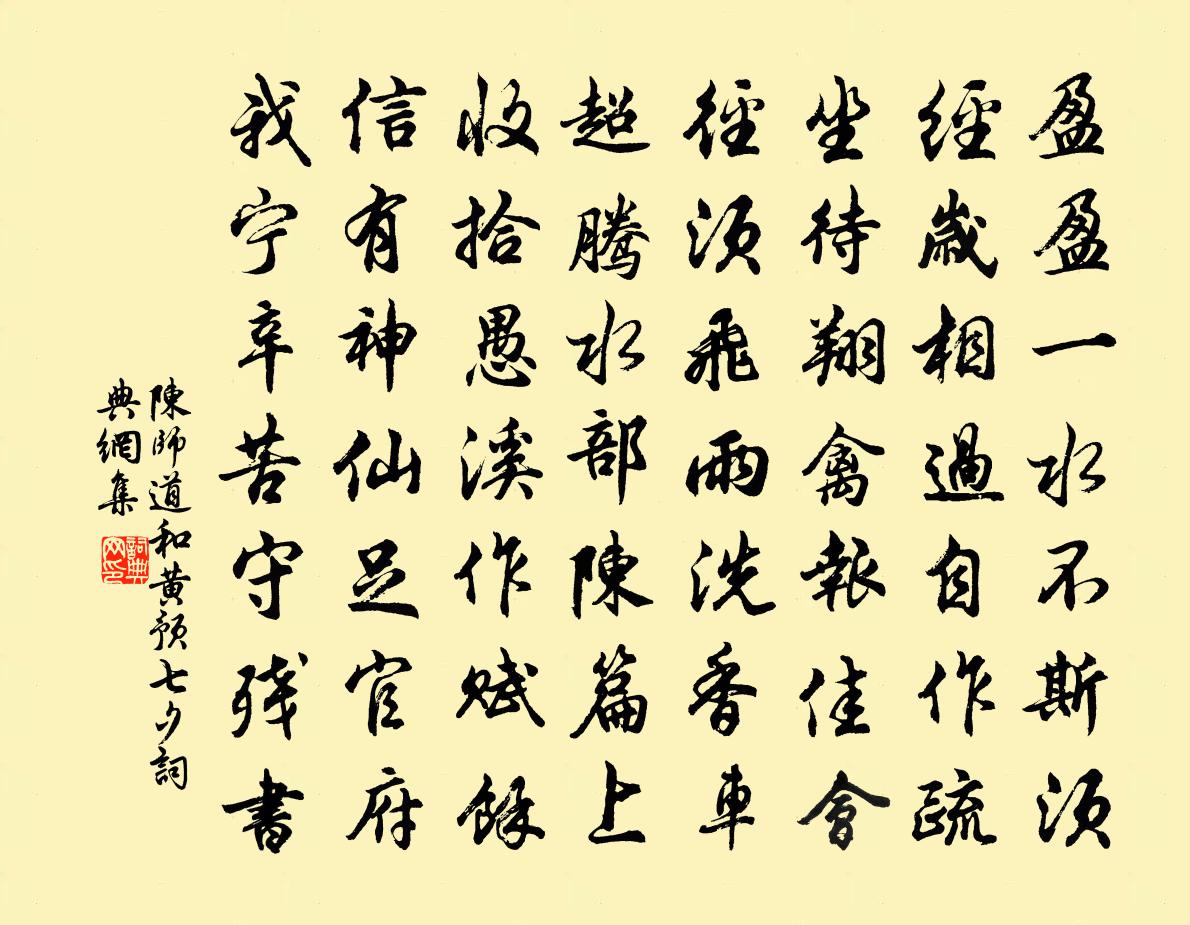 盈盈一水不斯須
經歲相過自作疏
坐待翔禽報佳會
徑須飛雨洗香車
超騰水部陳篇上
收拾愚溪作賦餘
信有神仙足官府
我宁辛苦守残書
陳師道和黄預七夕詞
典網集
詞典網印